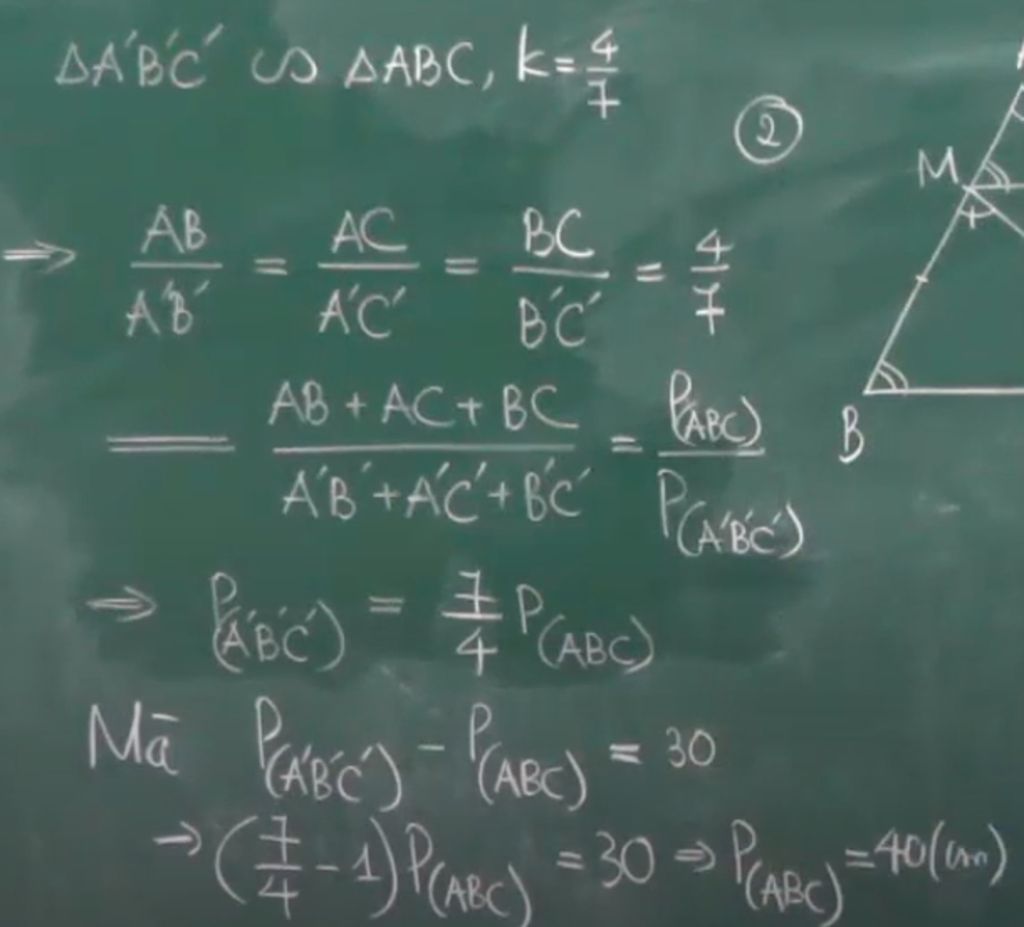 ΔA'B'C' ∽ ΔABC, k = 4/7
②
⇒ AB/A'B' = AC/A'C' = BC/B'C' = 4/7
= (AB + AC + BC)/(A'B' + A'C' + B'C') = P(ABC)/P(A'B'C')
⇒ P(A'B'C') = 7/4 P(ABC)
Mà P(A'B'C') - P(ABC) = 30
→ (7/4 - 1) P(ABC) = 30 ⇒ P(ABC) = 40 (cm)
M
B